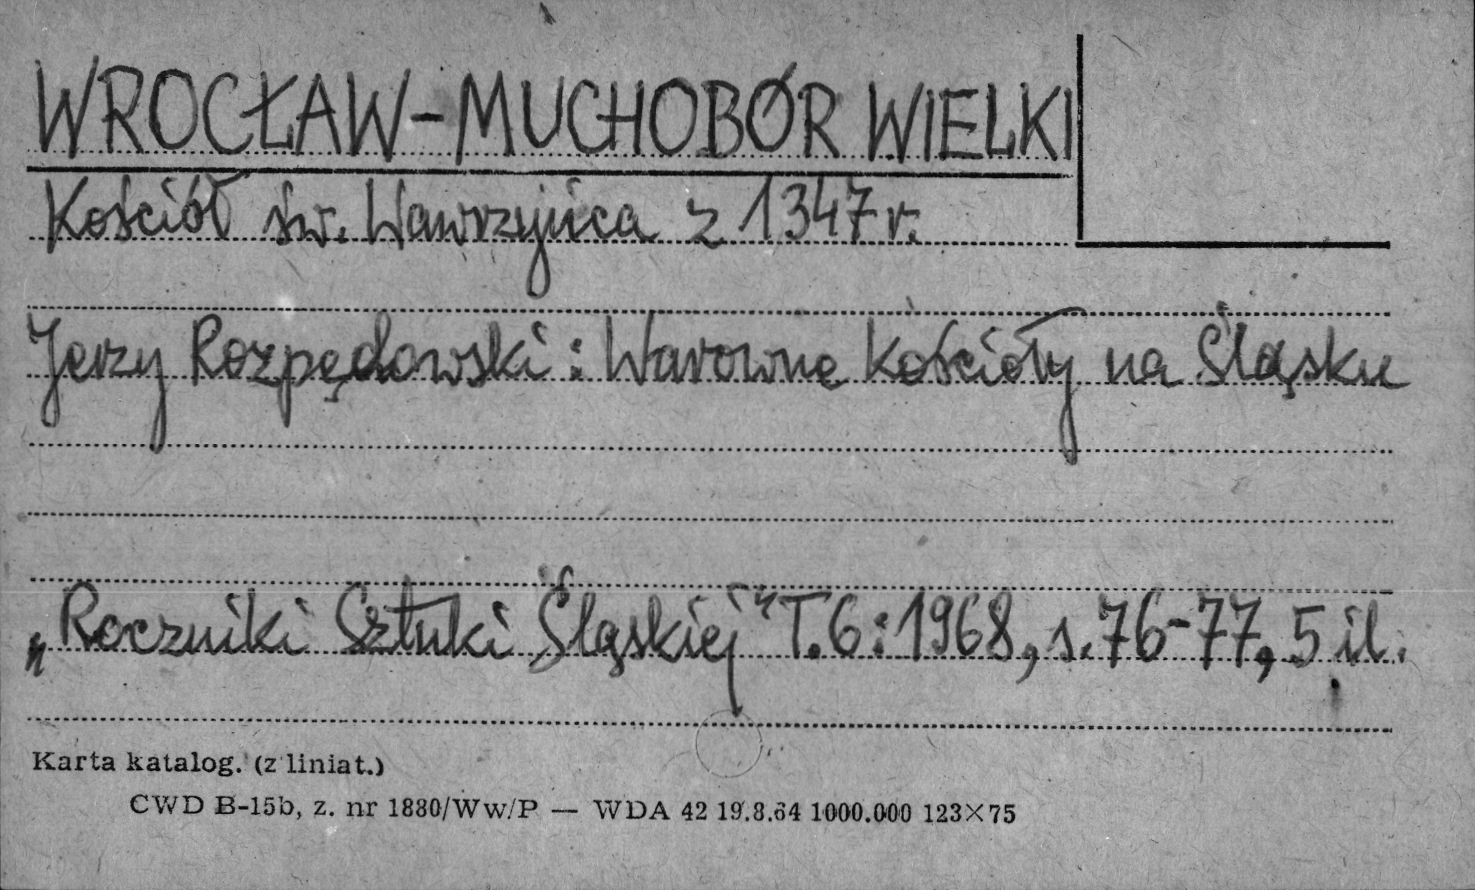 WROCŁAW-MUCHOBÓR WIELKI
Kościół św. Wawrzyńca z 1347 r.
Jerzy Rozpędowski: Warowne kościoły na Śląsku
„Roczniki Sztuki Śląskiej" T.6:1968, s.76-77, 5 il.
Karta katalog. (z liniat.)
CWD B-15b, z. nr 1880/Ww/P — WDA 42 19.8.64 1000.000 123×75